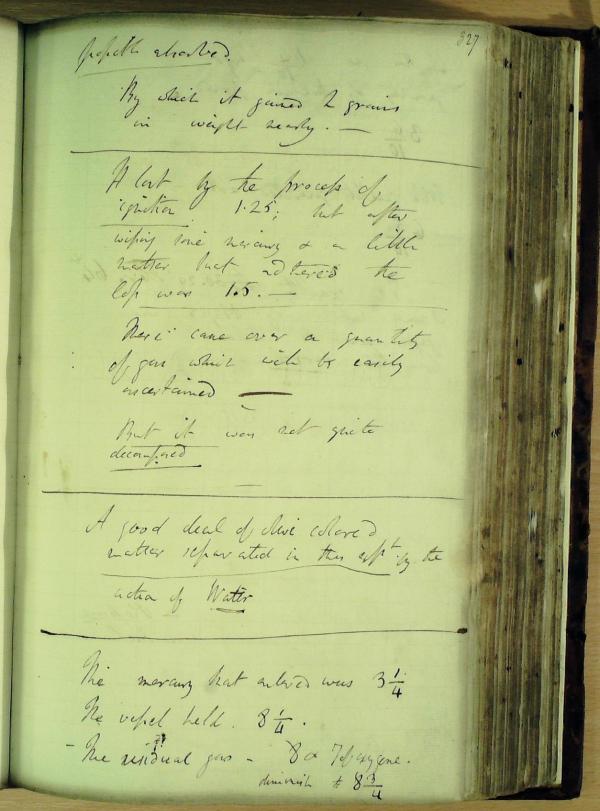 327
absorbed.
By which it gained 2 grains
in weight nearly. —
A lost by the process of
ignition 1.25; but after
wiping some mercury & a little
matter that adhered the
loss was 1.5. —
There came over a quantity
of gas which will be easily
ascertained —
But it was not quite
decomposed
A good deal of olive colored
matter separated in this expt. by the
action of Water
The mercury that entered was 3 1/4
The vessel held. 8 1/4.
– The residual gas – 8 & 7 of oxygene.
diminish to 8 3/4